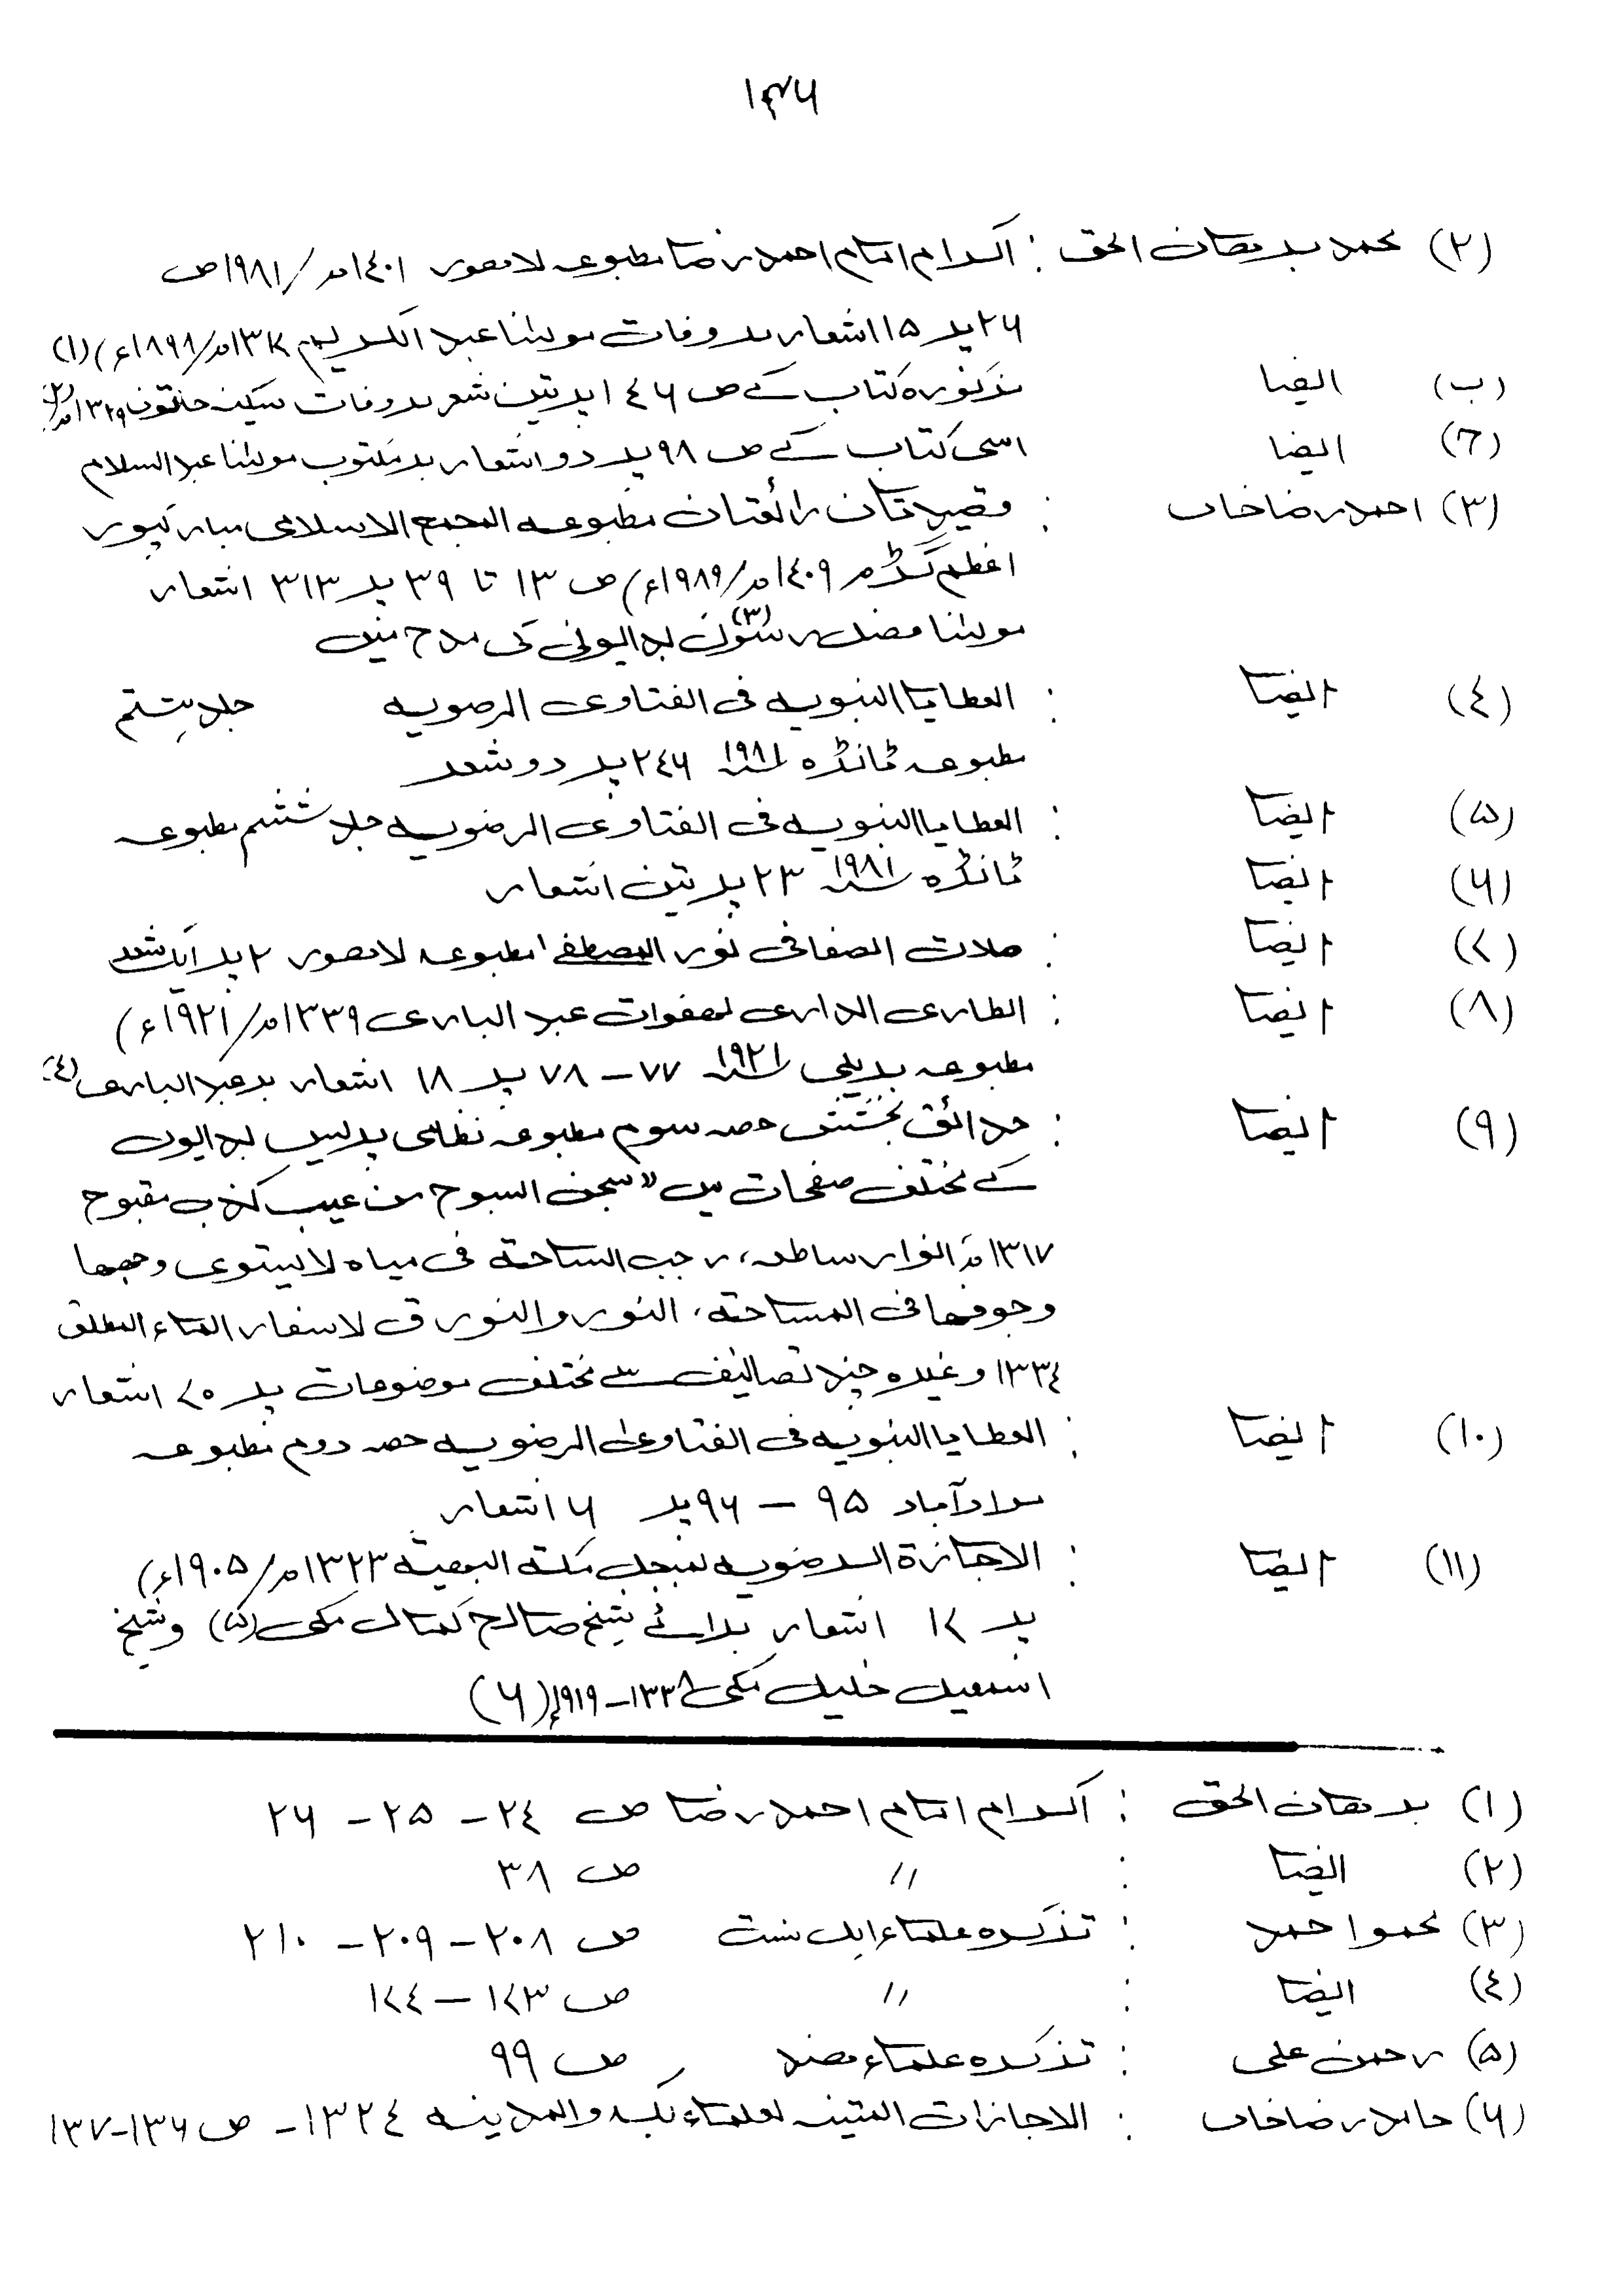 ۱۳۶
(۲) محمد برہان الحق : اکرام امام احمد رضا مطبوعہ لاہور ۱۴۰۱ھ/۱۹۸۱ ص
۲۶ پر ۱۵ اشعار بر وفات مولٰنا عبد الکریم ۱۳۱۷ھ/۱۸۹۸ء) (۱)
(ب) ایضا مذکورہ کتاب کے ص ۱۴۶ پر تین شعر بر وفات سکینہ خاتون ۱۳۲۹ھ (۲)
(ج) ایضا اسی کتاب کے ص ۹۸ پر دو اشعار بر مکتوب مولٰنا عبد السلام
(۳) احمد رضا خاں : قصیدتان رائعتان مطبوعہ المجمع الاسلامی مبارکپور
اعظم گڑھ ۱۴۰۹ھ/۱۹۸۹ء) ص ۱۳ تا ۳۹ پر ۳۱۳ اشعار
مولٰنا فضل رسول (۳) بدایونی کی مدح میں
(۴) ایضا : العطایا النبویہ فی الفتاوی الرضویہ جلد
مطبوعہ ٹانڈہ ۱۹۸۱ء ۲۴۶ پر دو شعر
(۵) ایضا : العطایا النبویہ فی الفتاوی الرضویہ جلد ششم مطبوعہ
(۶) ایضا ٹانڈہ ۱۹۸۱ء ۲۳ پر تین اشعار
(۷) ایضا : صلات الصفا فی نور المصطفٰے مطبوعہ لاہور ۲ پر ایک شعر
(۸) ایضا : الطاری الداری لہفوات عبد الباری ۱۳۳۹ھ/۱۹۲۱ء)
مطبوعہ بریلی ۱۹۲۱ء ۷۷ - ۷۸ پر ۱۸ اشعار بر عبد الباری (۴)
(۹) ایضا : حدائق بخشش حصہ سوم مطبوعہ نظامی پریس بدایوں
کے مختلف صفحات میں "سبحن السبوح من عیب کذب مقبوح
۱۳۱۷ھ انوار ساطعہ، رحب الساحۃ فی میاہ لا یستوی وجہہا
وجوفہا فی المساحۃ، النور والنورق لاسفار الماء المطلق
۱۳۳۴ وغیرہ چند تصانیف سے مختلف موضوعات پر ۷۰ اشعار
(۱۰) ایضا : العطایا النبویہ فی الفتاوی الرضویہ حصہ دوم مطبوعہ
مرادآباد ۹۵ - ۹۶ پر ۶ اشعار
(۱۱) ایضا : الاجازۃ الرضویہ لمبجل مکۃ البہیۃ ۱۳۲۳ھ/۱۹۰۵ء)
پر ۱۷ اشعار برائے شیخ صالح کمال مکی (۵) وشیخ
اسمعیل خلیل مکی ۱۳۳۸-۱۹۱۹ء (۶)
(۱) برہان الحق : اکرام امام احمد رضا ص ۲۴ - ۲۵ - ۲۶
(۲) ایضا : // ص ۳۸
(۳) محمود احمد : تذکرہ علماء اہل سنت ص ۲۰۸ - ۲۰۹ - ۲۱۰
(۴) ایضا : // ص ۱۷۳ - ۱۷۴
(۵) رحمن علی : تذکرہ علماء ہند ص ۹۹
(۶) حامد رضا خاں : الاجازات المتینہ لعلماء بکہ والمدینہ ۱۳۲۴ - ص ۱۳۶-۱۳۷